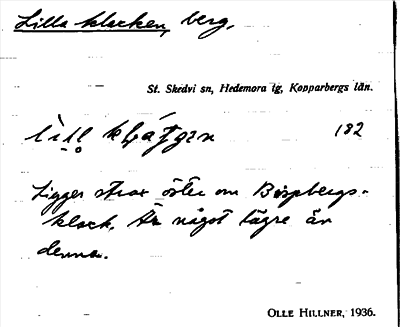 Lilla klacken, berg.
St. Skedvi sn, Hedemora tg, Kopparbergs län.
132
Ligger strax öster om Bispbergs-
klack. Är något lägre än
denna.
OLLE HILLNER, 1936.